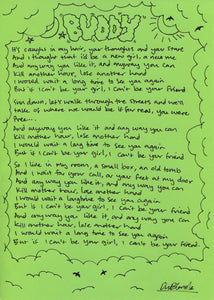 BUDDY
It's caught in my hair, your thoughts and your stare
And I thought that I'd be a new girl, a new me
And any way you like it, and any way you can
Kill another hour, lose another hand
I would wait a long time to see you again
But if I can't be your girl, I can't be your friend
Sun down, let's walk through the streets and we'll
talk of where we would be if for real, you were
free...
And any way you like it and any way you can
Kill another hour, lose another hand
I would wait a long time to see you again
But if I can't be your girl, I can't be your friend
So I lie in my room, a small box, an old tomb
And I wait for your call, or your feet at my door
And any way you like it, and any way you can
Kill another hour, lose another hand
I would wait a long time to see you again
But if I can't be your girl, I can't be your friend
And any way you like it, and any way you can
Kill another hour, lose another hand
I would wait a long time to see you again
But if I can't be your girl, I can't be your friend